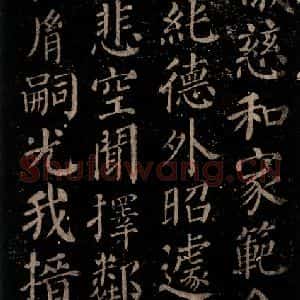 慈和家範
純德外昭遽
悲空聞擇鄰
胤嗣光我搢
Shufawang.CN